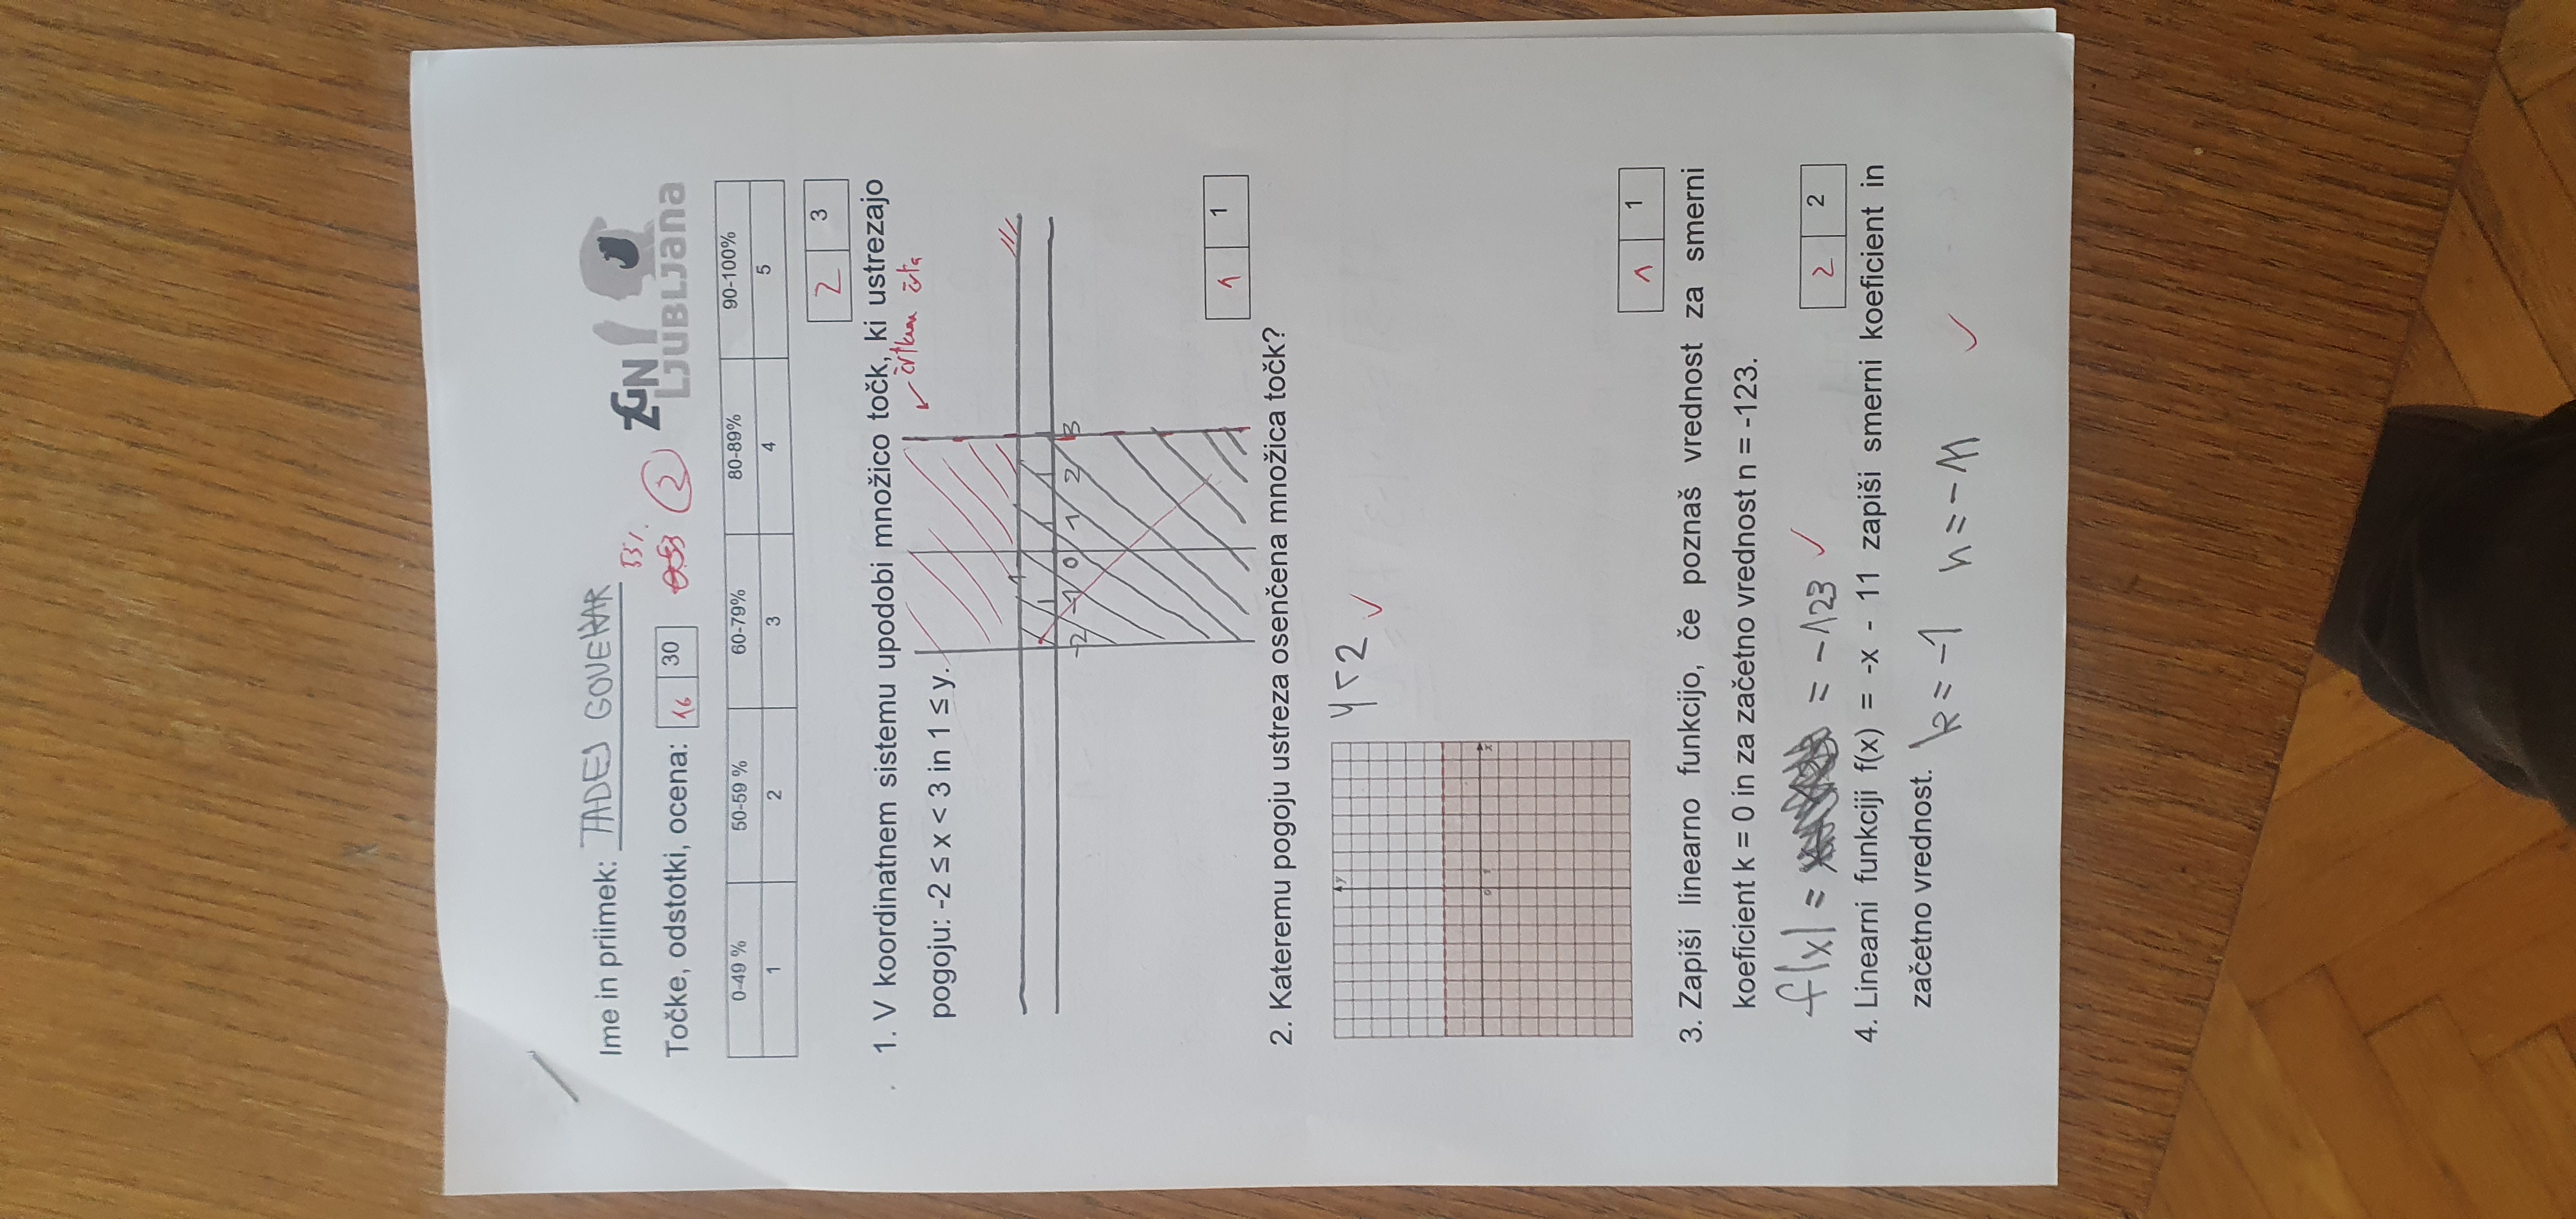 Ime in priimek: TADEJ GOVEKAR
53%
Točke, odstotki, ocena: 16 30 0.53 2
ZGN
LJUBLJana
0-49 % 50-59 % 60-79% 80-89% 90-100%
1 2 3 4 5
2 3
1. V koordinatnem sistemu upodobi množico točk, ki ustrezajo
črtkana črta
pogoju: -2 ≤ x < 3 in 1 ≤ y.
1
-2 -1 0 1 2 3
1 1
2. Kateremu pogoju ustreza osenčena množica točk?
y
y < 2
0 1 x
1 1
3. Zapiši linearno funkcijo, če poznaš vrednost za smerni
koeficient k = 0 in za začetno vrednost n = -123.
f(x) = = -123
2 2
4. Linearni funkciji f(x) = -x - 11 zapiši smerni koeficient in
začetno vrednost. k = -1 n = -11